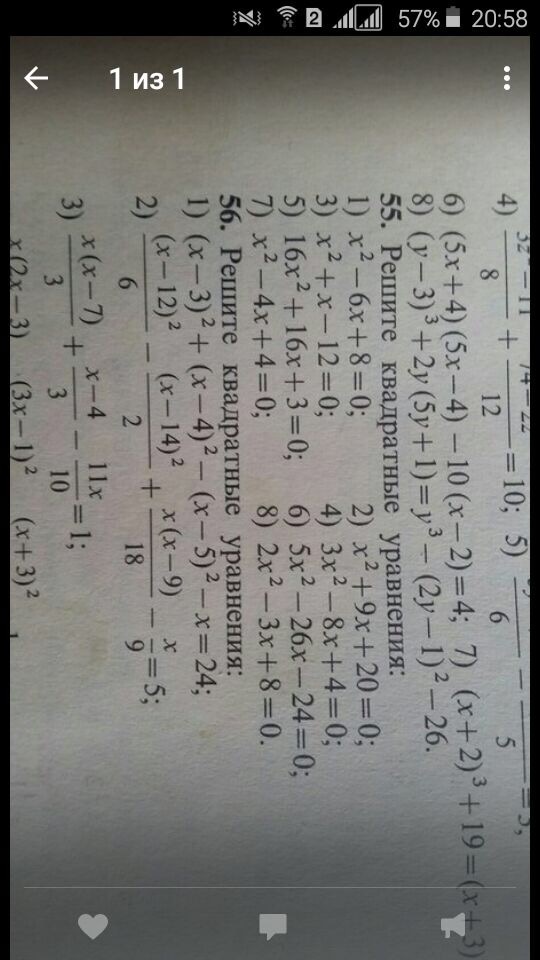 2 57% 20:58
1 из 1
4) 8 + 12 = 10; 5) 6 − 5
6) (5x+4)(5x−4)−10(x−2)=4; 7) (x+2)³+19=(x+3)
8) (y−3)³+2y(5y+1)=y³−(2y−1)²−26.
55. Решите квадратные уравнения:
1) x²−6x+8=0; 2) x²+9x+20=0;
3) x²+x−12=0; 4) 3x²−8x+4=0;
5) 16x²+16x+3=0; 6) 5x²−26x−24=0;
7) x²−4x+4=0; 8) 2x²−3x+8=0.
56. Решите квадратные уравнения:
1) (x−3)²+(x−4)²−(x−5)²−x=24;
2) (x−12)²/6 − (x−14)²/2 + x(x−9)/18 − x/9 = 5;
3) x(x−7)/3 + x−4/3 − 11x/10 = 1;
x(2x−3) (3x−1)² (x+3)²